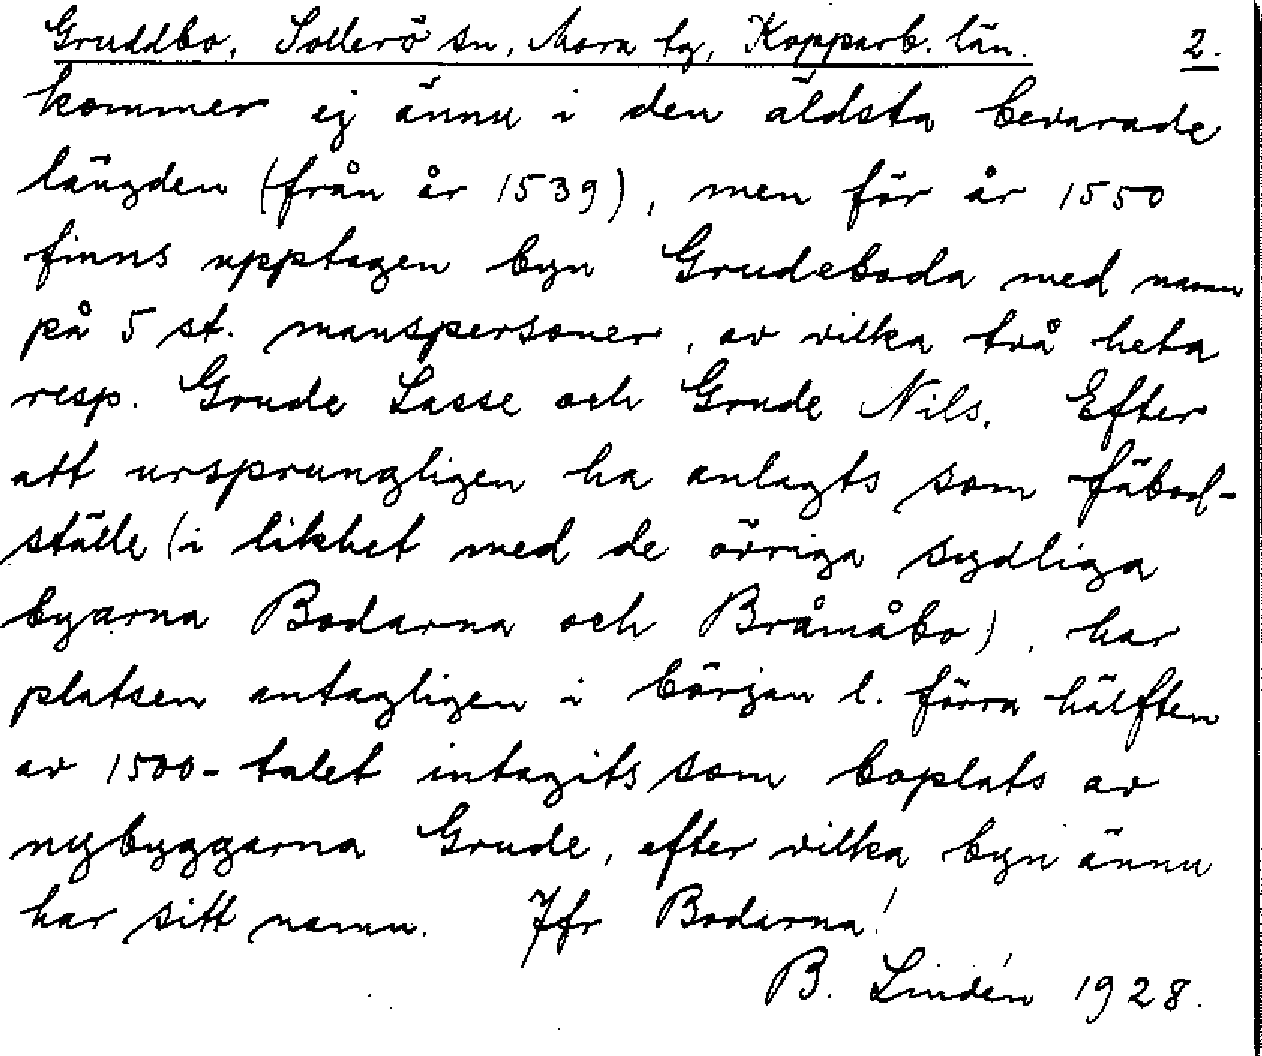 Gruddbo, Sollerö sn, Mora tg, Kopparb. län. 2.
kommer ej ännu i den äldsta bevarade
längden (från år 1539), men för år 1550
finns upptagen byn Grudeboda med namn
på 5 st. manspersoner, av vilka två heta
resp. Grude Lasse och Grude Nils. Efter
att ursprungligen ha anlagts som fäbod-
ställe (i likhet med de övriga sydliga
byarna Bodarna och Bråmåbo), har
platsen antagligen i början l. förra hälften
av 1500-talet intagits som boplats av
nybyggarna Grude, efter vilka byn ännu
har sitt namn. Jfr Bodarna!
B. Lindén 1928.